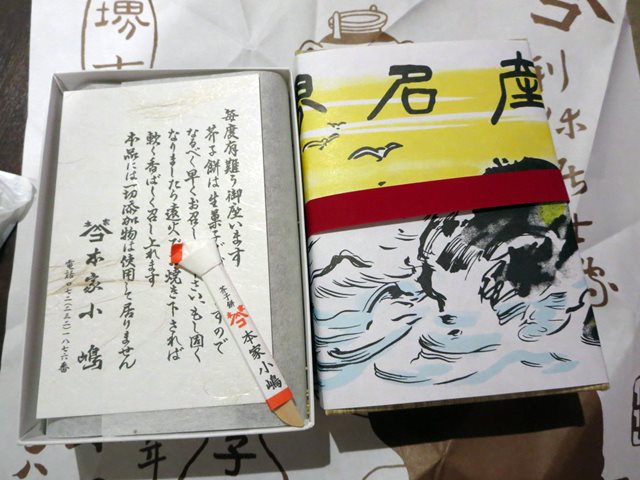 毎度有難う御座います
芥子餅は生菓子で すので
なるべく早くお召し さい、もし固く
なりましたら遠火 焼き下されば
軟く香ばしく召し上れます
本品には一切添加物は使用して居りません
本家小嶋
電話〇七二(二三二)一八七六番
芥子餅
本家小嶋
名産
堺市
利休居士
子
年